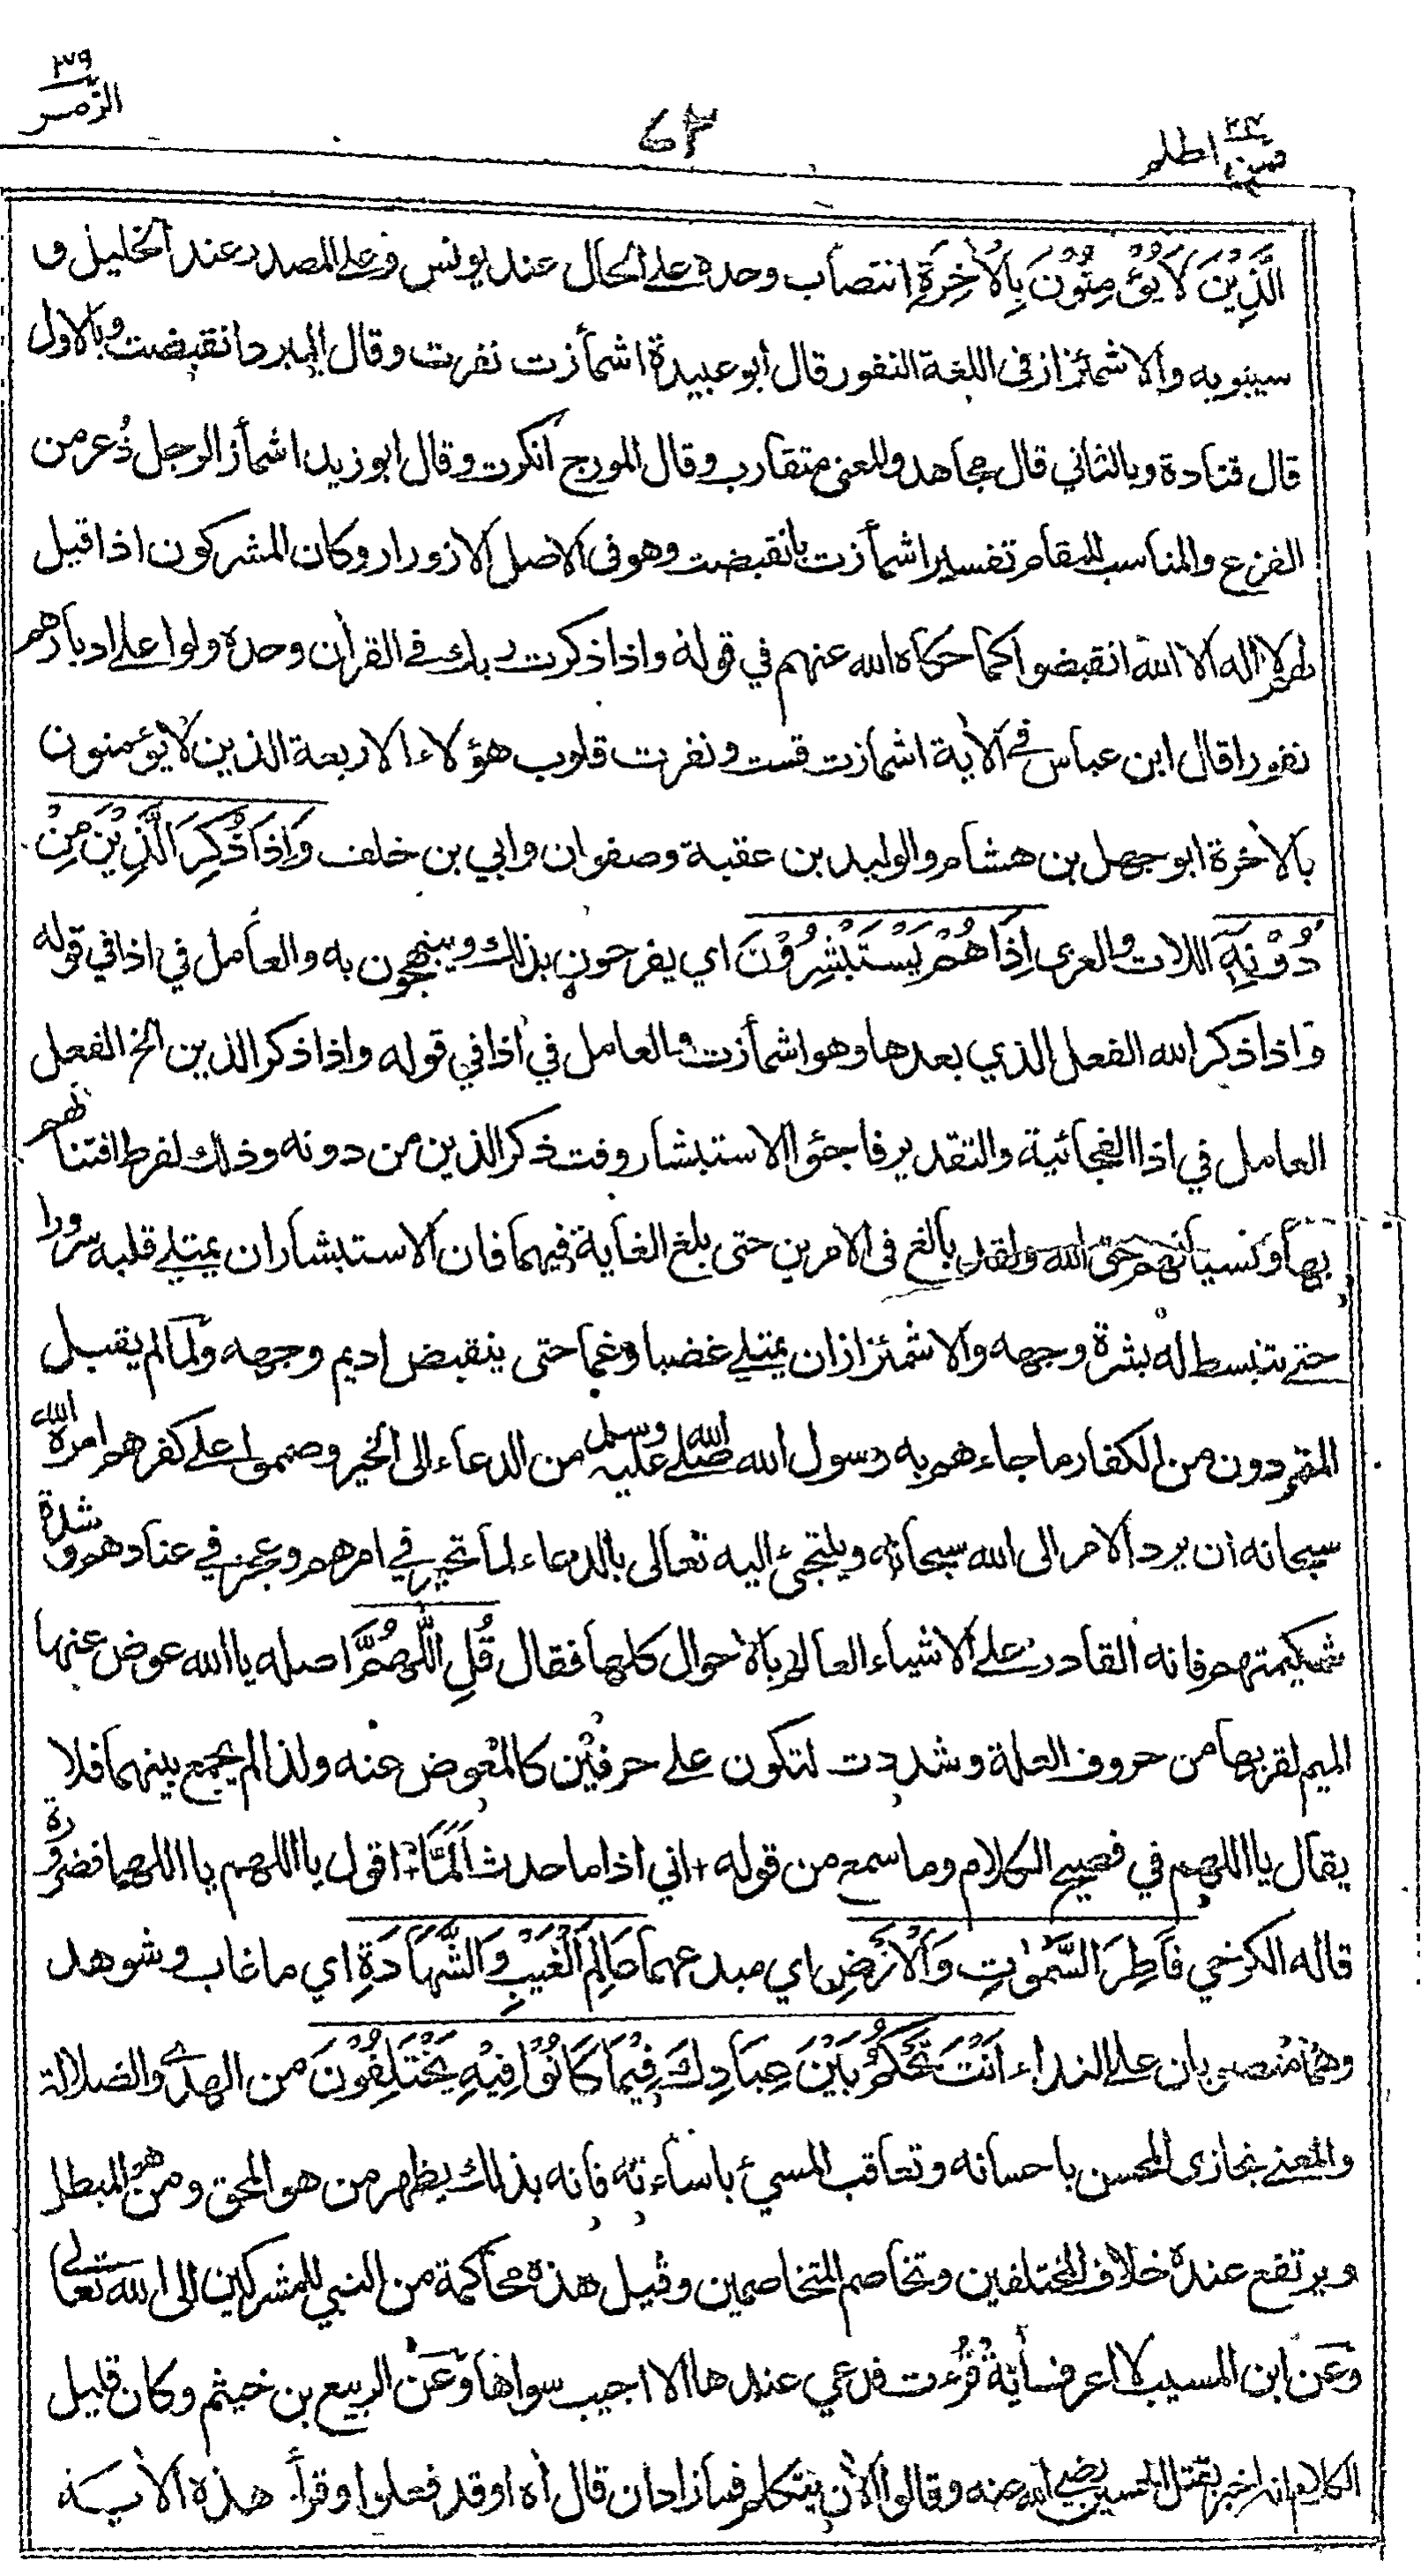 ٣٩
الزمر
٦٢
٢٤
فمن اظلم
الَّذِيْنَ لَا يُؤْمِنُوْنَ بِالْاٰخِرَةِ انتصاب وحده على الحال عند يونس وعلى المصدر عند الخليل و
سيبويه والاشمئزاز في اللغة النفور قال أبو عبيدة اشمأزت نفرت وقال المبرد انقبضت وبالاول
قال قتادة وبالثاني قال مجاهد والمعنى متقارب وقال المورج انكرت وقال ابو زيد اشمأز الرجل ذُعر من
الفزع والمناسب للمقام تفسير اشمأزت بانقبضت وهو في الاصل الازورار وكان المشركون اذا قيل
لهم لا اله الا الله انقبضوا كما حكاه الله عنهم في قوله واذا ذكرت ربك في القرأن وحده ولوا على ادبارهم
نفورا قال ابن عباس في الاٰية اشمازت قست ونفرت قلوب هؤلاء الاربعة الذين لا يؤمنون
بالاٰخرة ابو جهل بن هشام والوليد بن عقبة وصفوان وابي بن خلف وَاِذَا ذُكِرَ الَّذِيْنَ مِنْ
دُوْنِهٖٓ اللات والعزى اِذَا هُمْ يَسْتَبْشِرُوْنَ اي يفرحون بذلك ويبتهجون به والعامل في اذا في قوله
واذا ذكر الله الفعل الذي بعدها وهو اشمأزت والعامل في اذا في قوله واذا ذكر الذين الخ الفعل
العامل في اذا الفجائية والتقدير فاجئوا الاستبشار وقت ذكر الذين من دونه وذلك لفرط افتتانهم
بها ونسيانهم حق الله ولقد بالغ في الامرين حتى بلغ الغاية فيهما فان الاستبشار ان يمتلي قلبه سرورا
حتى تنبسط له بشرة وجهه والاشمئزاز ان يمتلي غضبا وغما حتى ينقبض اديم وجهه ولما لم يقبل
المتمردون من الكفار ما جاءهم به رسول الله صلى الله عليه وسلم من الدعاء الى الخير وصمموا على كفرهم امره الله
سبحانه ان يرد الامر الى الله سبحانه ويلتجئ اليه تعالى بالدعاء لما تحير في امرهم وعجز في عنادهم و شدة
شكيمتهم فانه القادر على الاشياء العالم بالاحوال كلها فقال قُلِ اللّٰهُمَّ اصله يا الله عوض عنها
الميم لقربها من حروف العلة وشددت لتكون على حرفين كالمعوض عنه ولذا لم يجمع بينهما فلا
يقال يا اللهم في فصيح الكلام وما سمع من قوله + اني اذا ما حدث اَلَمَّا + اقول يا اللهم يا اللهما فضرورة
قاله الكرخي فَاطِرَ السَّمٰوٰتِ وَالْاَرْضِ اي مبدعهما عَالِمَ الْغَيْبِ وَالشَّهَادَةِ اي ما غاب وشوهد
وهما منصوبان على النداء اَنْتَ تَحْكُمُ بَيْنَ عِبَادِكَ فِيْمَا كَانُوْا فِيْهِ يَخْتَلِفُوْنَ من الهدى والضلالة
والمعنى تجازى المحسن باحسانه وتعاقب المسيئ باساءته فانه بذلك يظهر من هو المحق ومن هو المبطل
ويرتفع عنده خلاف المختلفين وتخاصم المتخاصمين وقيل هذه محاكمة من النبي للمشركين الى الله تعالى
وعن ابن المسيب لا اعرف اٰية قُرِئت فدعي عندها الا اجيب سواها وعن الربيع بن خيثم وكان قليل
الكلام انه اخبر بقتل الحسين رضي الله عنه وقالوا الاٰن يتكلم فما زاد ان قال اٰه اوقد فعلوا وقرأ هذه الاٰية